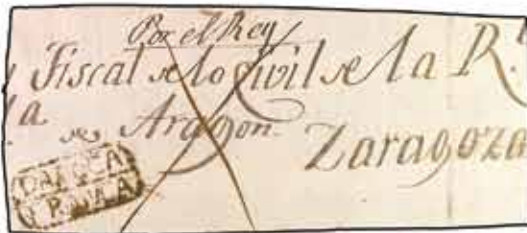 Por el Rey
Fiscal de lo Civil de la R.
la
Aragon
Zaragoza
DAROCA